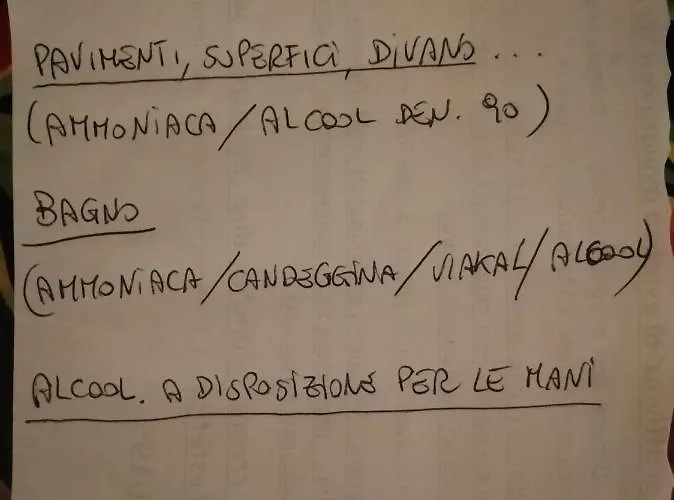 PAVIMENTI, SUPERFICI, DIVANO...
(AMMONIACA/ALCOOL DEN. 90)
BAGNO
(AMMONIACA/CANDEGGINA/VIAKAL/ALCOOL)
ALCOOL. A DISPOSIZIONE PER LE MANI